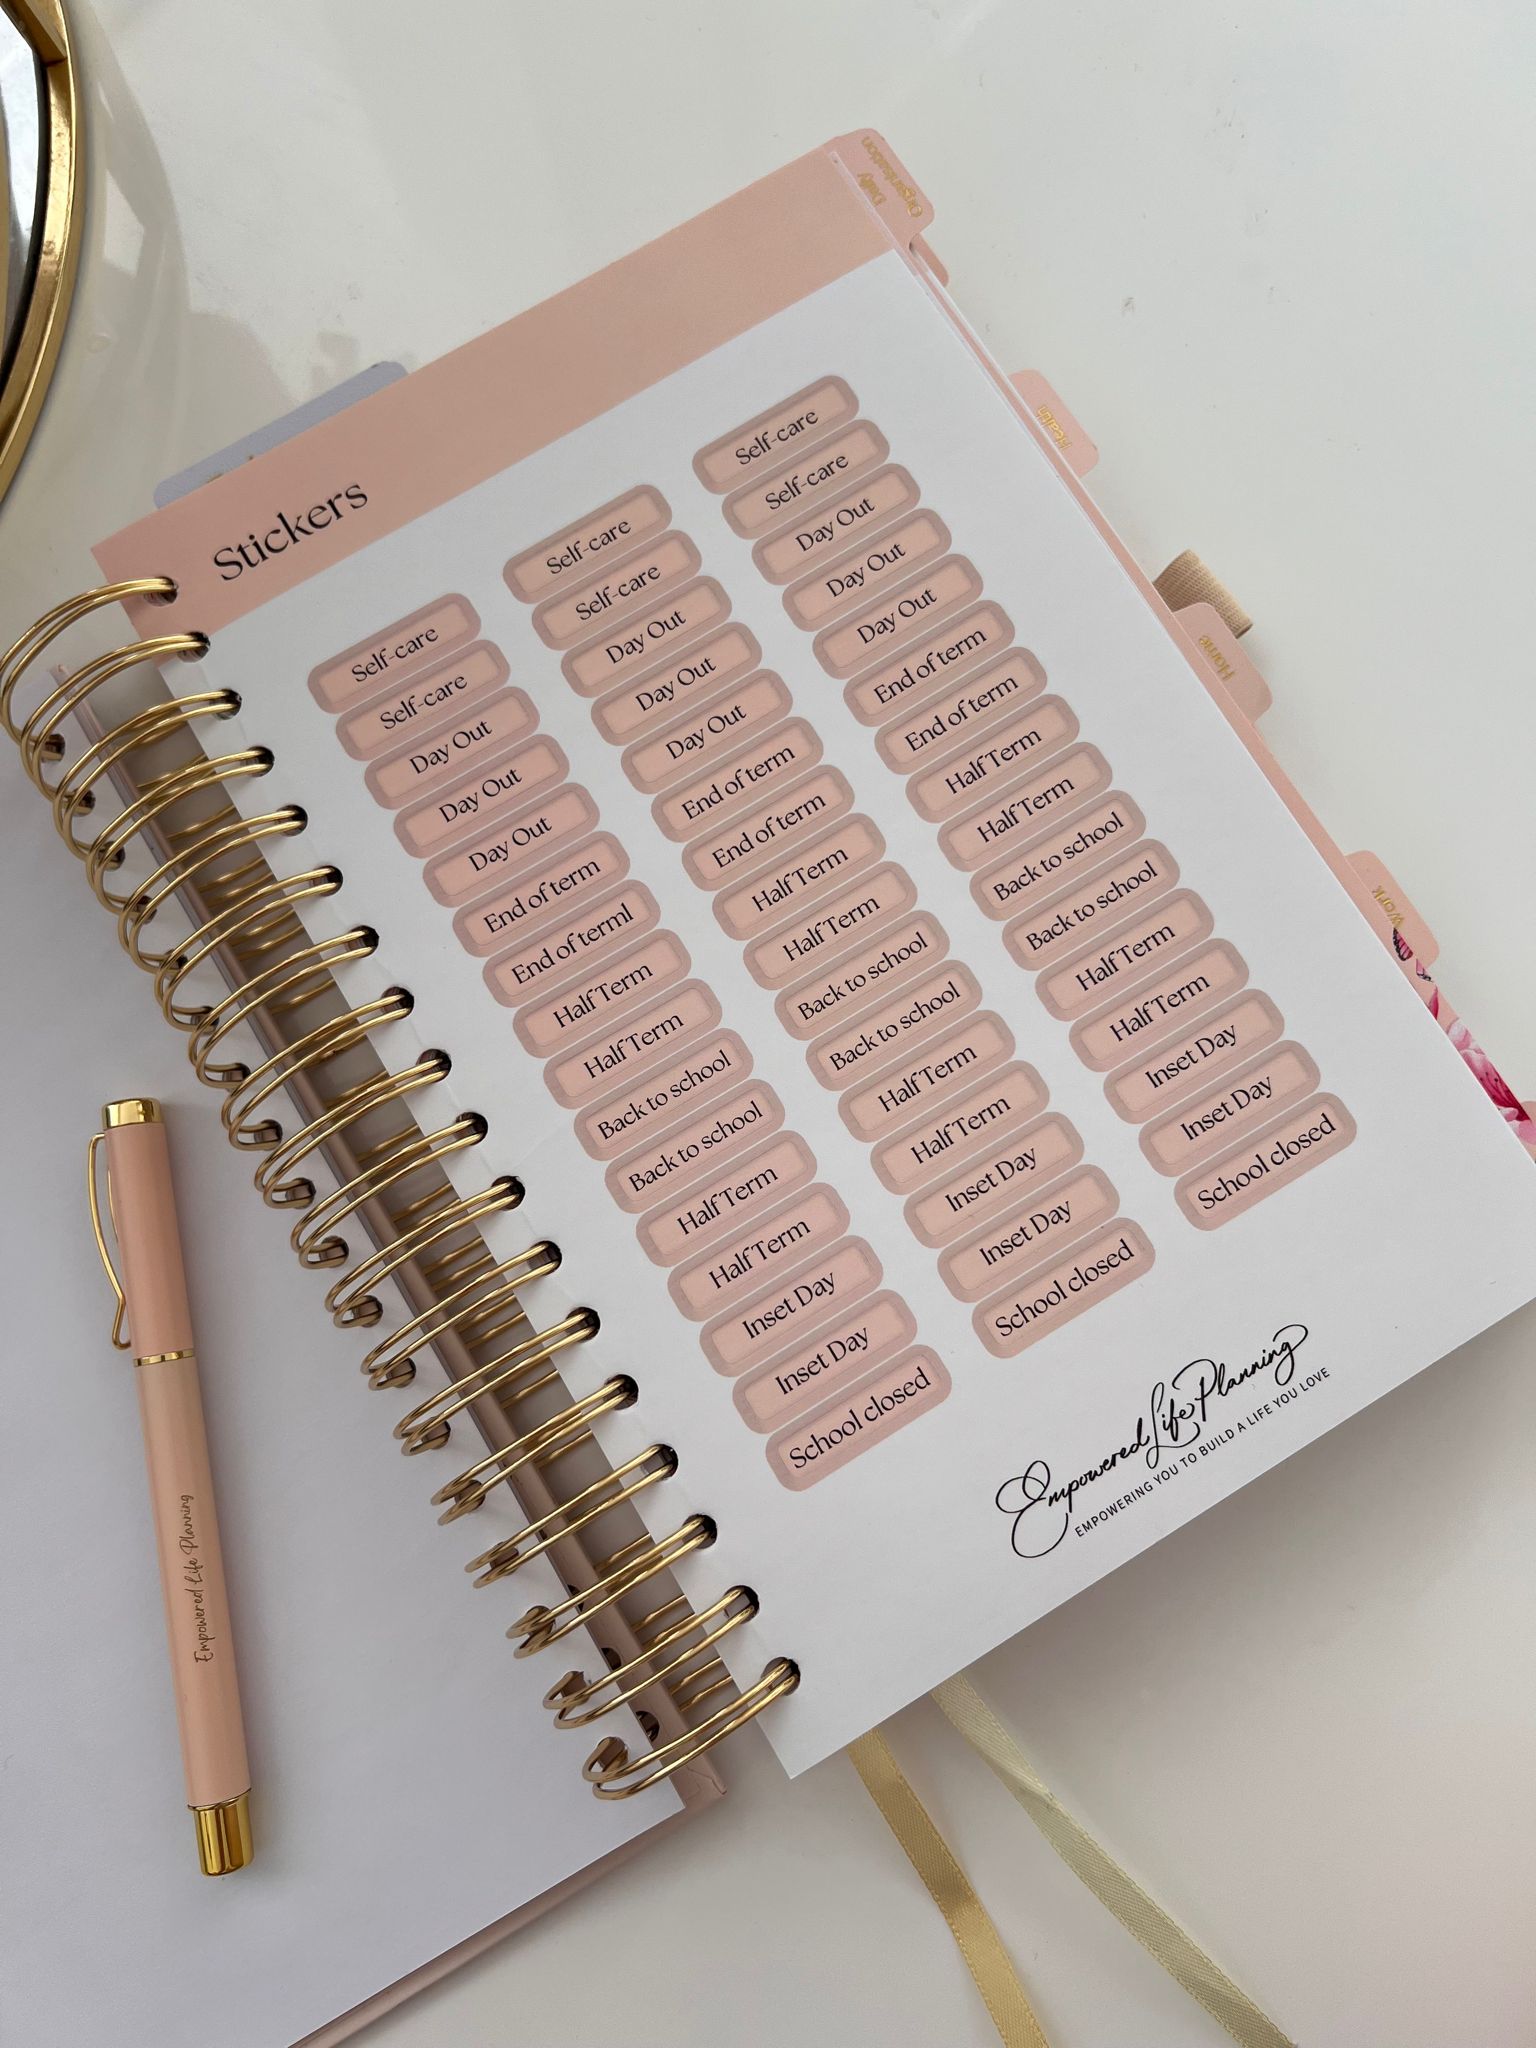 Stickers
Self-care
Self-care
Day Out
Day Out
Day Out
End of term
End of terml
Half Term
Half Term
Back to school
Back to school
Half Term
Half Term
Inset Day
Inset Day
School closed
Self-care
Self-care
Day Out
Day Out
Day Out
End of term
End of term
Half Term
Half Term
Back to school
Back to school
Half Term
Half Term
Inset Day
Inset Day
School closed
Self-care
Self-care
Day Out
Day Out
Day Out
End of term
End of term
Half Term
Half Term
Back to school
Back to school
Half Term
Half Term
Inset Day
Inset Day
School closed
Empowered Life Planning
EMPOWERING YOU TO BUILD A LIFE YOU LOVE
Daily
Organisation
Health
Home
Work
Empowered Life Planning